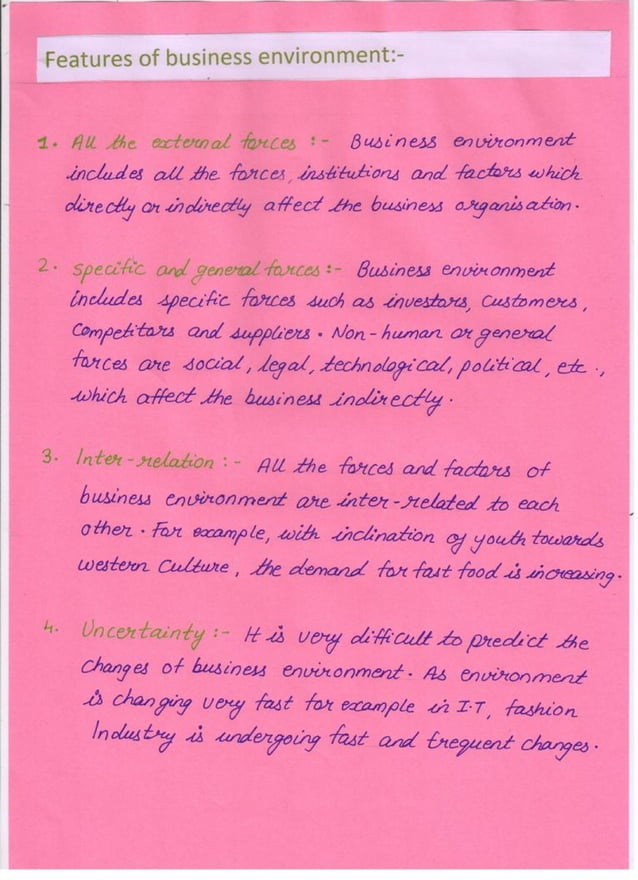 Features of business environment:-
1. All the external forces :- Business environment
includes all the forces, institutions and factors which
directly or indirectly affect the business organisation.
2. specific and general forces :- Business environment
includes specific forces such as investors, Customers,
Competitors and suppliers. Non-human or general
forces are social, legal, technological, political, etc.,
which affect the business indirectly.
3. Inter-relation :- All the forces and factors of
business environment are inter-related to each
other. For example, with inclination of youth towards
western Culture, the demand for fast food is increasing.
4. Uncertainty :- It is very difficult to predict the
changes of business environment. As environment
is changing very fast for example in I.T, fashion
Industry is undergoing fast and frequent changes.